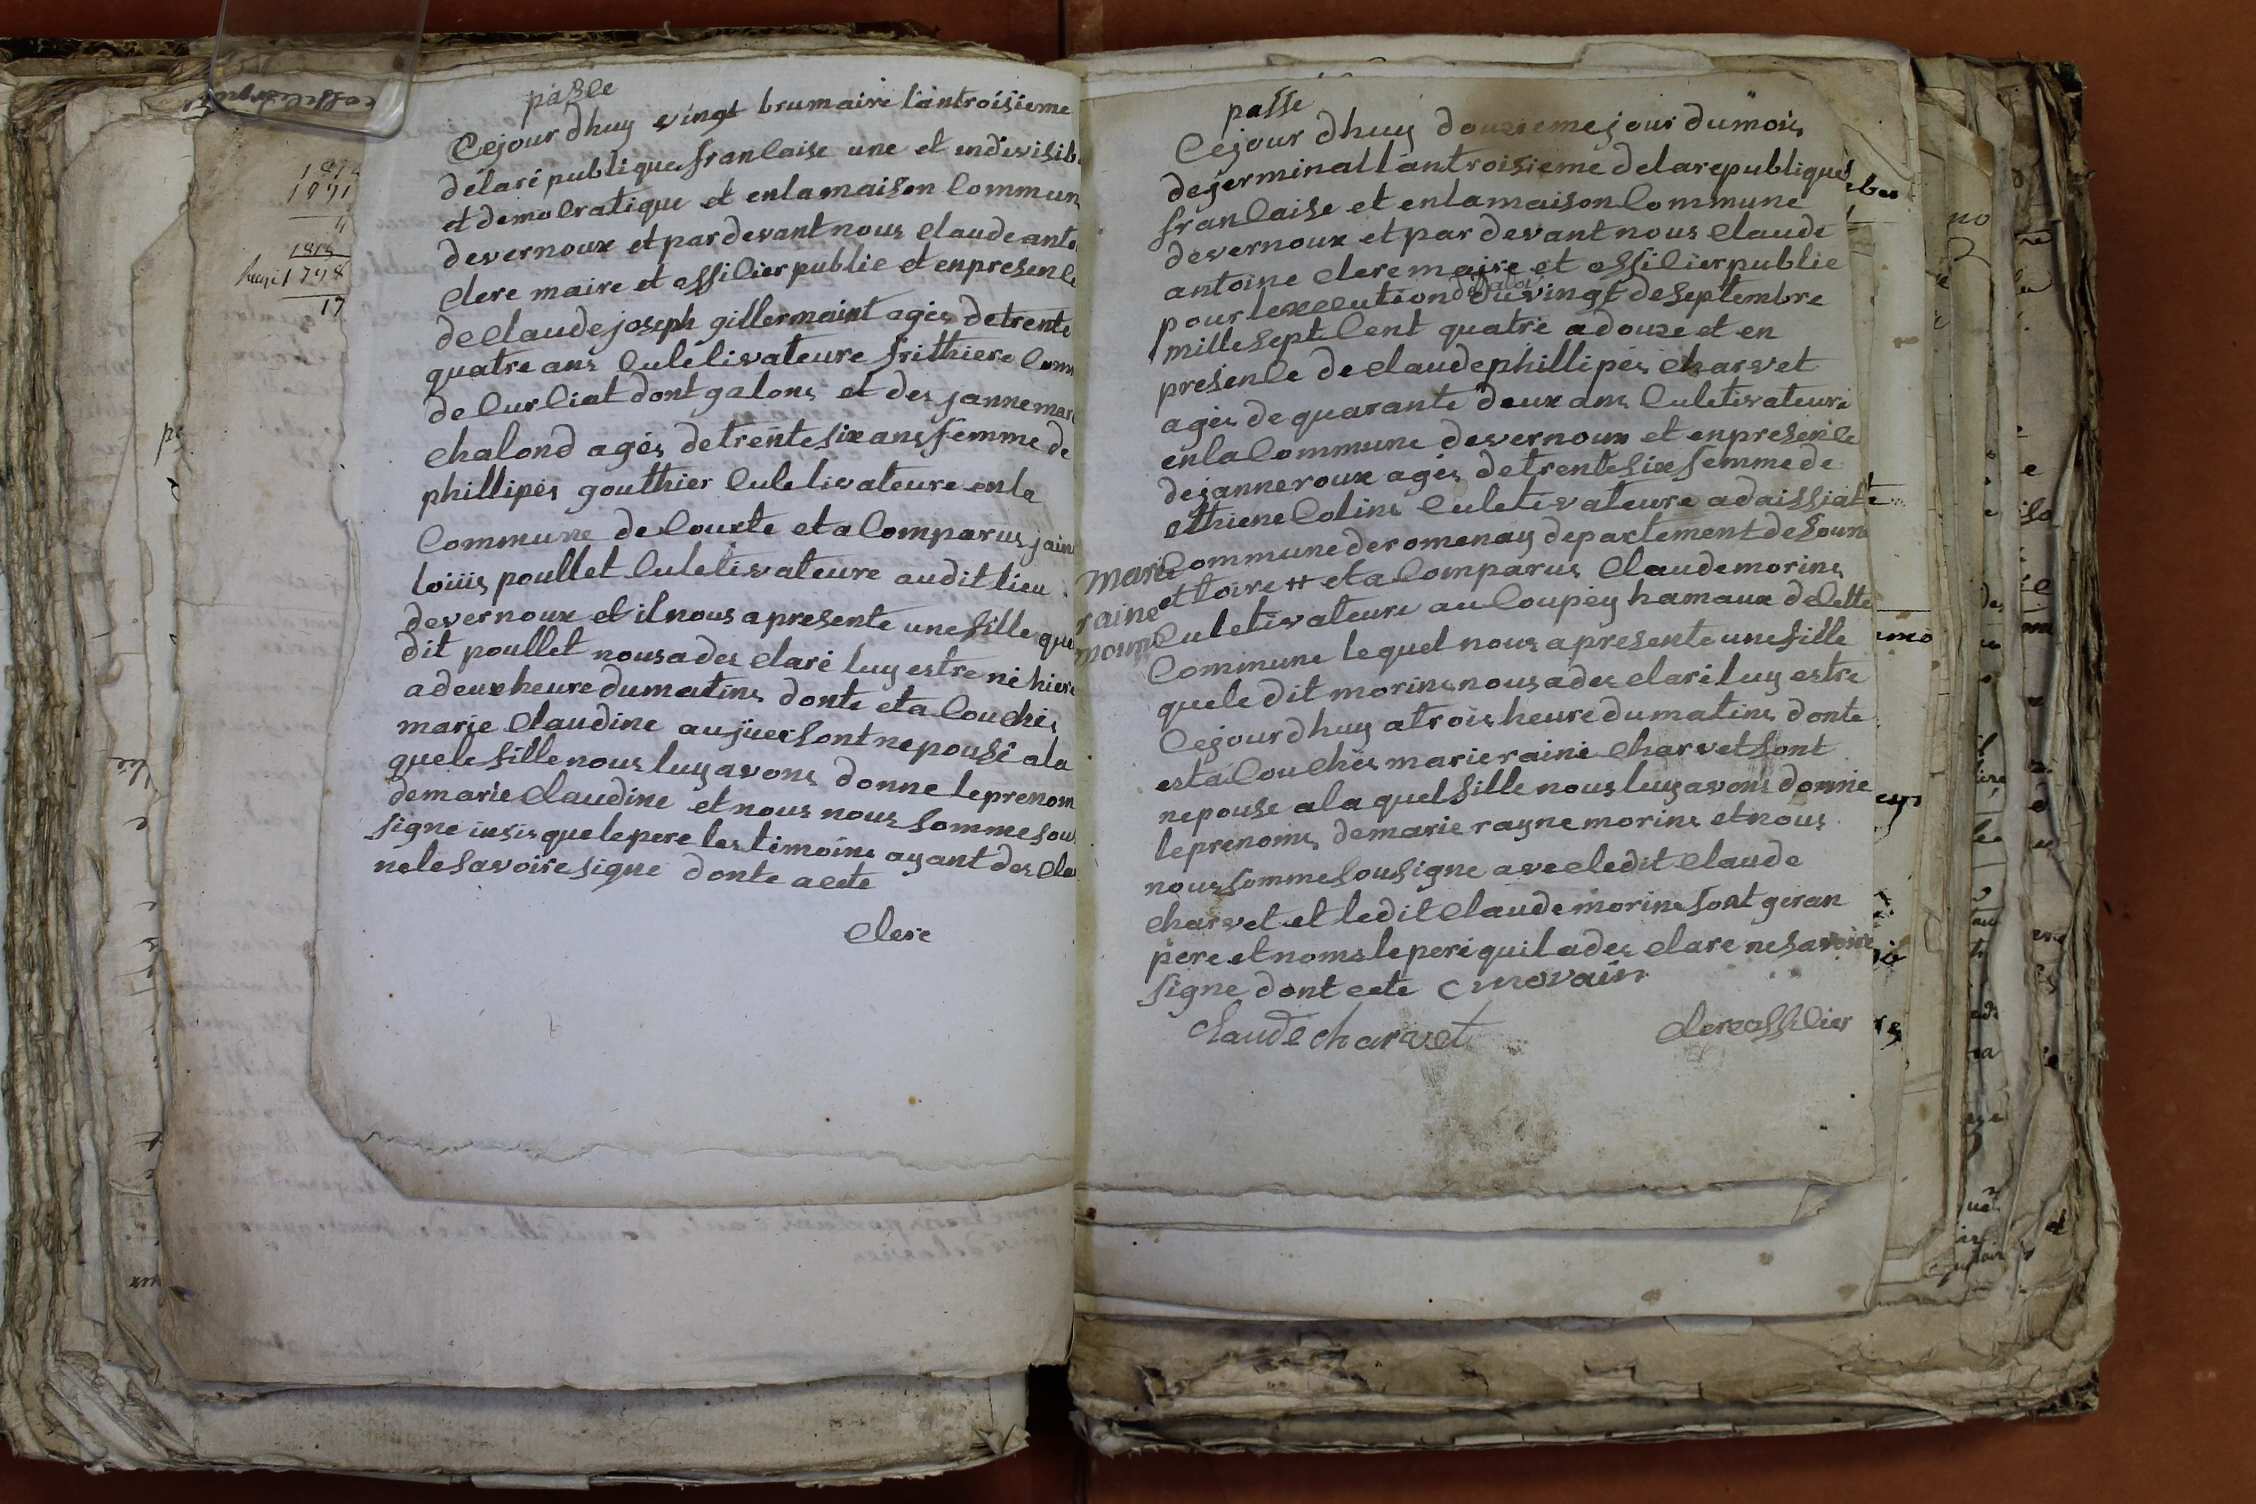 passe
Cejour dhuy vingt brumaire lantroisieme
delare publique francaise une et indivisib
et democratique et enlamaison Commun
devernoux et pardevant nous Claude anto
Clere maire et officier public et enpresence
de Claude joseph gillermaint ages detrente
quatre ans Culetivateure frithiere Comm
de Curciat dont galons et des janne mari
chalond ages detrente six ans femme de
phillipes gouthier Culetivateure en la
Commune de Courte et a Comparus jain
loiiis poullet Culetivateure audit lieu
devernoux et il nous a presente une fille que
dit poullet nous a des clare luy estre ne hiere
a deux heure dumatins donte et a Couches
marie Claudine aujuer sont nepouse a la
quele fille nous luy avons donne leprenom
demarie Claudine et nous nous somme sou
signe insis que lepere les timoins ayant des cla
nele savoire signe donte acete
Clere
1812
1791
1815
1798
17
passe
Cejour dhuy douzieme jour dumois
degerminal lantroisieme delarepublique
francaise et enlamaison Commune
devernoux et par devant nous Claude
antoine Clere maire et officier public
pour lexecution de la loi du vingt de septembre
mille sept Cent quatre a douze et en
presence de Claude phillipes Charvet
ages de quarante deux ans Culetivateure
enla Commune devernoux et enpresence
dejanne roux ages detrente six femme de
ethiene Colins Culetivateure adaissiat
Commune deromenay departement de soun
et loire # et a Comparus Claude morins
marie
raine
Culetivateure au Coupey hamaux de Cette
Commune le quel nous a presente une fille
quele dit morins nous a des clare luy estre
Cejour dhuy a trois heure dumatins donte
est a Couches marie raine Charvet sont
nepouse a la quel fille nous luy avons donne
leprenoms demarie rayne morins et nous
nous somme sousigne avec ledit Claude
Charvet et ledit Claude morins sont geran
pere et noms le pere quil a des clare ne savoire
signe dont cete C morain
Claude Charvet
Clere officier